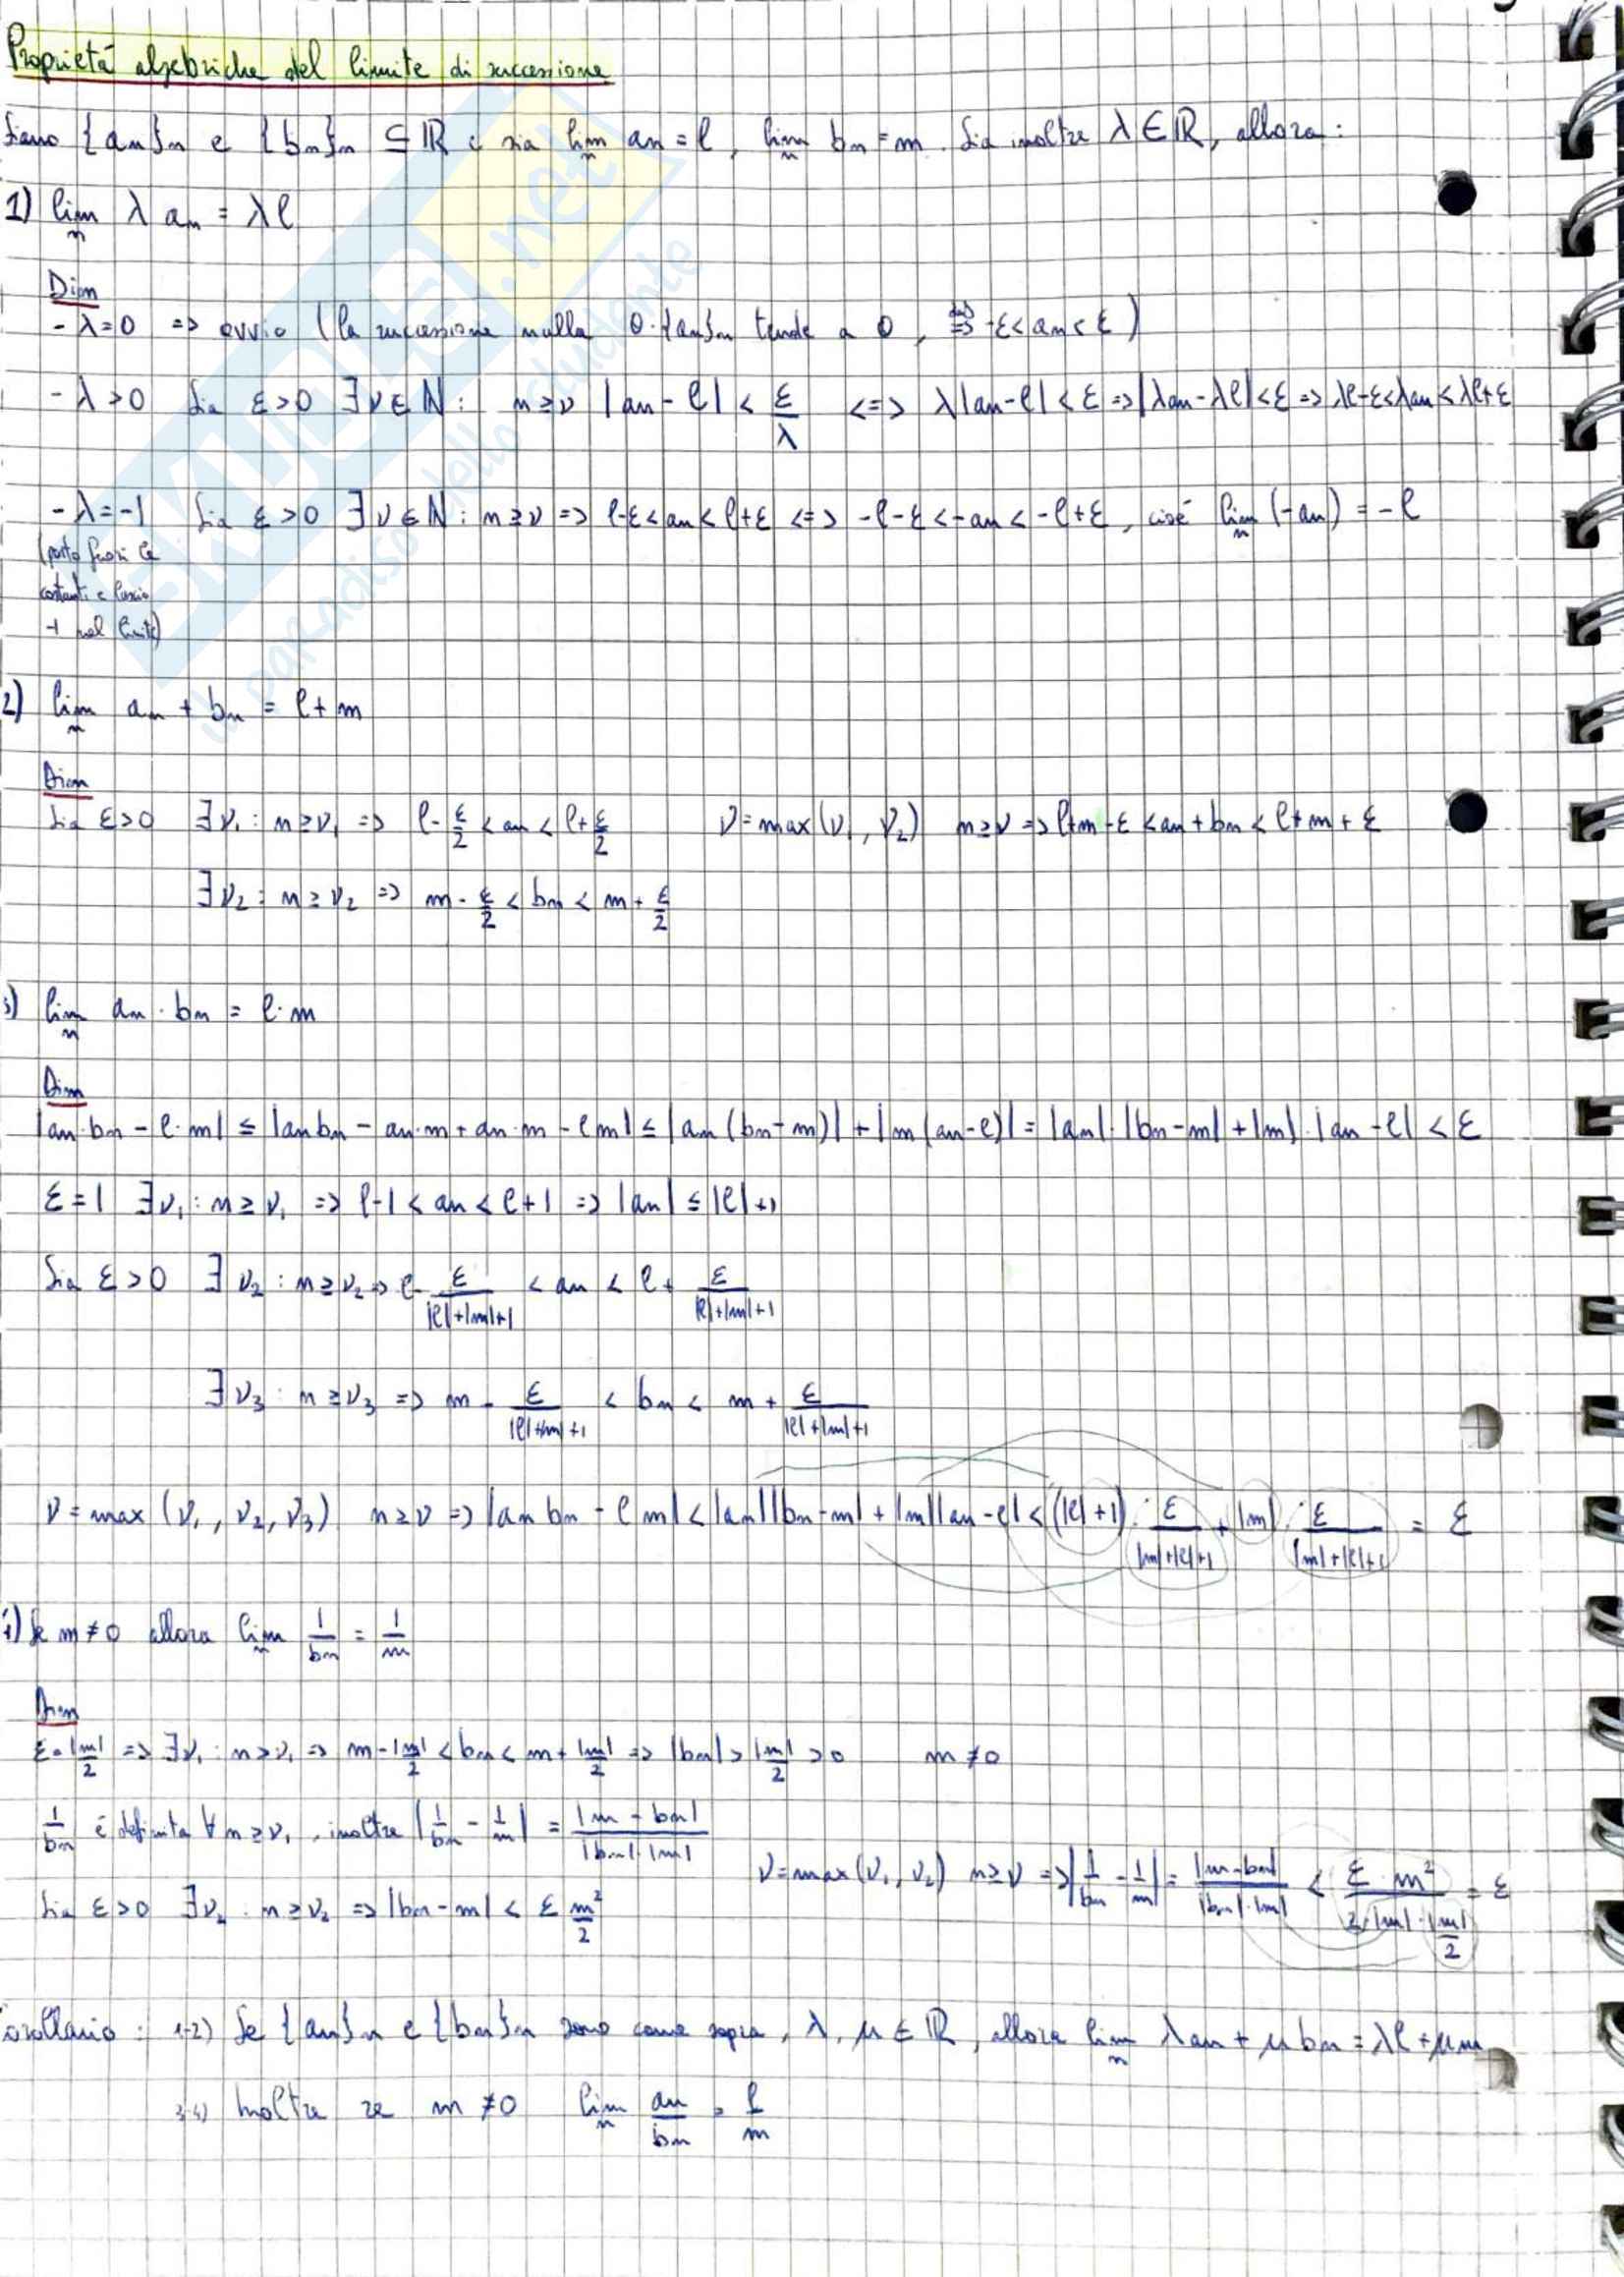 Proprietà algebriche del limite di successione
Siano {an}n e {bn}n ⊆ ℝ e sia lim n an = l, lim n bn = m. Sia inoltre λ ∈ ℝ, allora:
1) lim n λ an = λl
Dim
- λ=0 => ovvio (la successione nulla 0·{an}n tende a 0, => -ε<an<ε)
- λ>0 Sia ε>0 ∃ν∈ℕ: n≥ν |an-l| < ε/λ <=> λ|an-l|<ε => |λan-λl|<ε => λl-ε<λan<λl+ε
- λ=-1 Sia ε>0 ∃ν∈ℕ: n≥ν => l-ε<an<l+ε <=> -l-ε<-an<-l+ε, cioè lim n (-an) = -l
(porto fuori le
costanti e lascio
-1 nel limite)
2) lim n an + bn = l+m
Dim
Sia ε>0 ∃ν1: n≥ν1 => l-ε/2 < an < l+ε/2 ν=max(ν1, ν2) n≥ν => l+m-ε < an+bn < l+m+ε
∃ν2: n≥ν2 => m-ε/2 < bn < m+ε/2
3) lim n an·bn = l·m
Dim
|an·bn - l·m| ≤ |anbn - an·m + an·m - lm| ≤ |an(bn-m)| + |m(an-l)| = |an|·|bn-m| + |m|·|an-l| < ε
ε=1 ∃ν1: n≥ν1 => l-1 < an < l+1 => |an| ≤ |l|+1
Sia ε>0 ∃ν2: n≥ν2 => l - ε/(|l|+|m|+1) < an < l + ε/(|l|+|m|+1)
∃ν3: n≥ν3 => m - ε/(|l|+|m|+1) < bn < m + ε/(|l|+|m|+1)
ν=max(ν1, ν2, ν3) n≥ν => |an bn - l m| < |an||bn-m| + |m||an-l| < (|l|+1)· ε/(|m|+|l|+1) + |m|· ε/(|m|+|l|+1) = ε
Se m≠0 allora lim n 1/bn = 1/m
Dim
ε=|m|/2 => ∃ν1: n>ν1 => m-|m|/2 < bn < m+|m|/2 => |bn| > |m|/2 > 0 m≠0
1/bn è definita ∀n≥ν1, inoltre |1/bn - 1/m| = |m-bn|/(|bn|·|m|)
Sia ε>0 ∃ν2: n≥ν2 => |bn-m| < ε m²/2 ν=max(ν1, ν2) n≥ν => |1/bn - 1/m| = |m-bn|/(|bn|·|m|) < ε·m²/(2·|m|·|m|/2) = ε
Corollario: 1-2) Se {an}n e {bn}n sono come sopra, λ, μ ∈ ℝ, allora lim n λan + μbn = λl + μm
3-4) Inoltre se m≠0 lim n an/bn = l/m